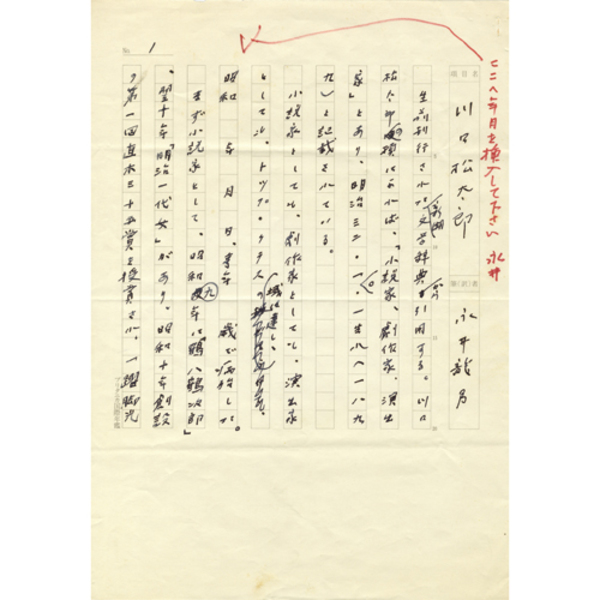 ここへ年月を挿入して下さい 永井
項目名 川口松太郎 筆(訳)者 永井龍男
生前刊行された新潮文学辞典から引用すると、川口
松太郎の項によれば、「小説家、劇作家、演出
家」とあり、明治三二・一〇・一生れ(一八九
九)と記載されている。
小説家としても、劇作家としても、演出家
としても、トップ・クラスの域に達し、
昭和 年 月 日、享年 歳で病歿した。
まず小説家として、昭和九年に「鶴八鶴次郎」
、翌十年「明治一代女」があり、昭和十年創設
の第一回直木三十五賞を授賞され、一躍脚光
No. 1